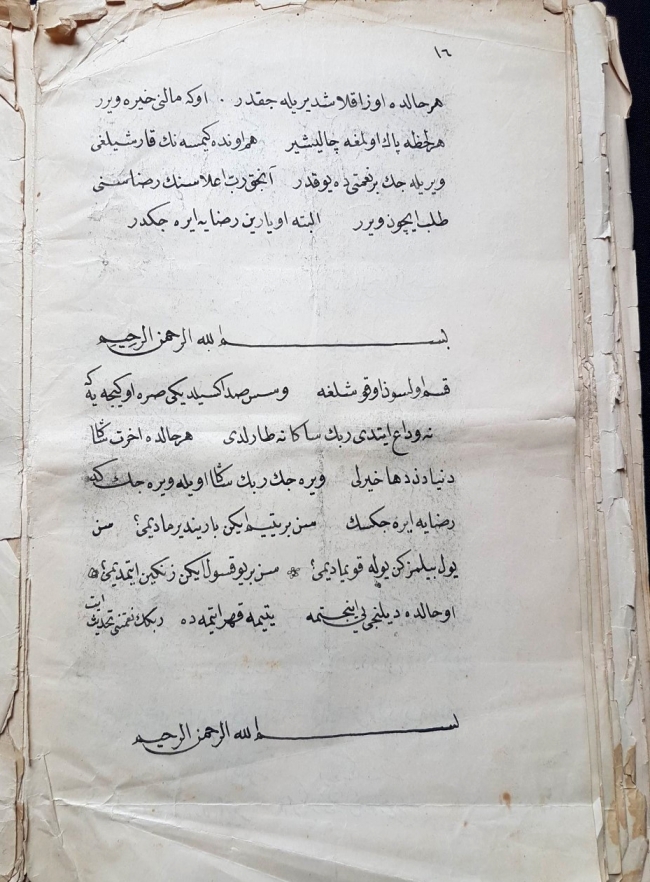 ١٦
هر حالده اوزاقلاشديريله جقدر . اوكه مالنى خيره ويرر
هر لحظه پاك اولمغه چاليشير هم اونده كيمسه نك قارشيلغى
ويريله جك بر نعمتى ده يوقدر آنجق رب اعلاسنك رضاسنى
طلب ايچون ويرر البته او يارين رضايه ايره جكدر
بسم الله الرحمن الرحيم
قسم اولسون او قوشلغه وسس صدا كسيلديكى صره او كيجه يه كه
نه وداع ايتدى ربك سا كا نه طارلدى هر حالده اخرت سكا
دنيادن دها خيرلى ويره جك ربك سكا اويله ويره جك كه
رضايه ايره جكسك سن بر يتيم ايكن بارينديرماديمى؟ سن
يول بيلمز كن يوله قويماديمى؟ * سن بر يوقسول ايكن زنكين ايتمديمى؟ *
او حالده ديلنجى يى اينجتمه يتيمه قهر ايتمه ده ربكك نعمتنى تحديث ايت
بسم الله الرحمن الرحيم